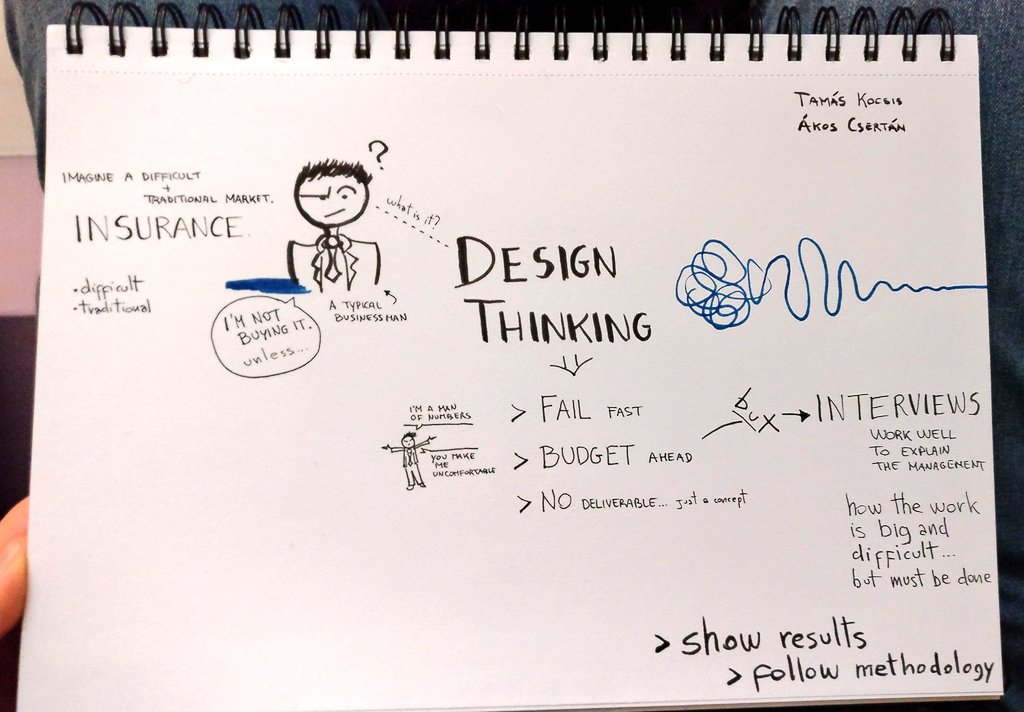 TAMÁS KOCSIS
ÁKOS CSERTÁN
IMAGINE A DIFFICULT
+
TRADITIONAL MARKET.
INSURANCE.
• difficult
• traditional
?
what is it?
A TYPICAL
BUSINESSMAN
I'M NOT
BUYING IT.
unless...
DESIGN
THINKING
I'M A MAN
OF NUMBERS
YOU MAKE
ME
UNCOMFORTABLE
> FAIL FAST
> BUDGET AHEAD
> NO DELIVERABLE... just a concept
INTERVIEWS
WORK WELL
TO EXPLAIN
THE MANAGEMENT
how the work
is big and
difficult...
but must be done
> show results
> follow methodology